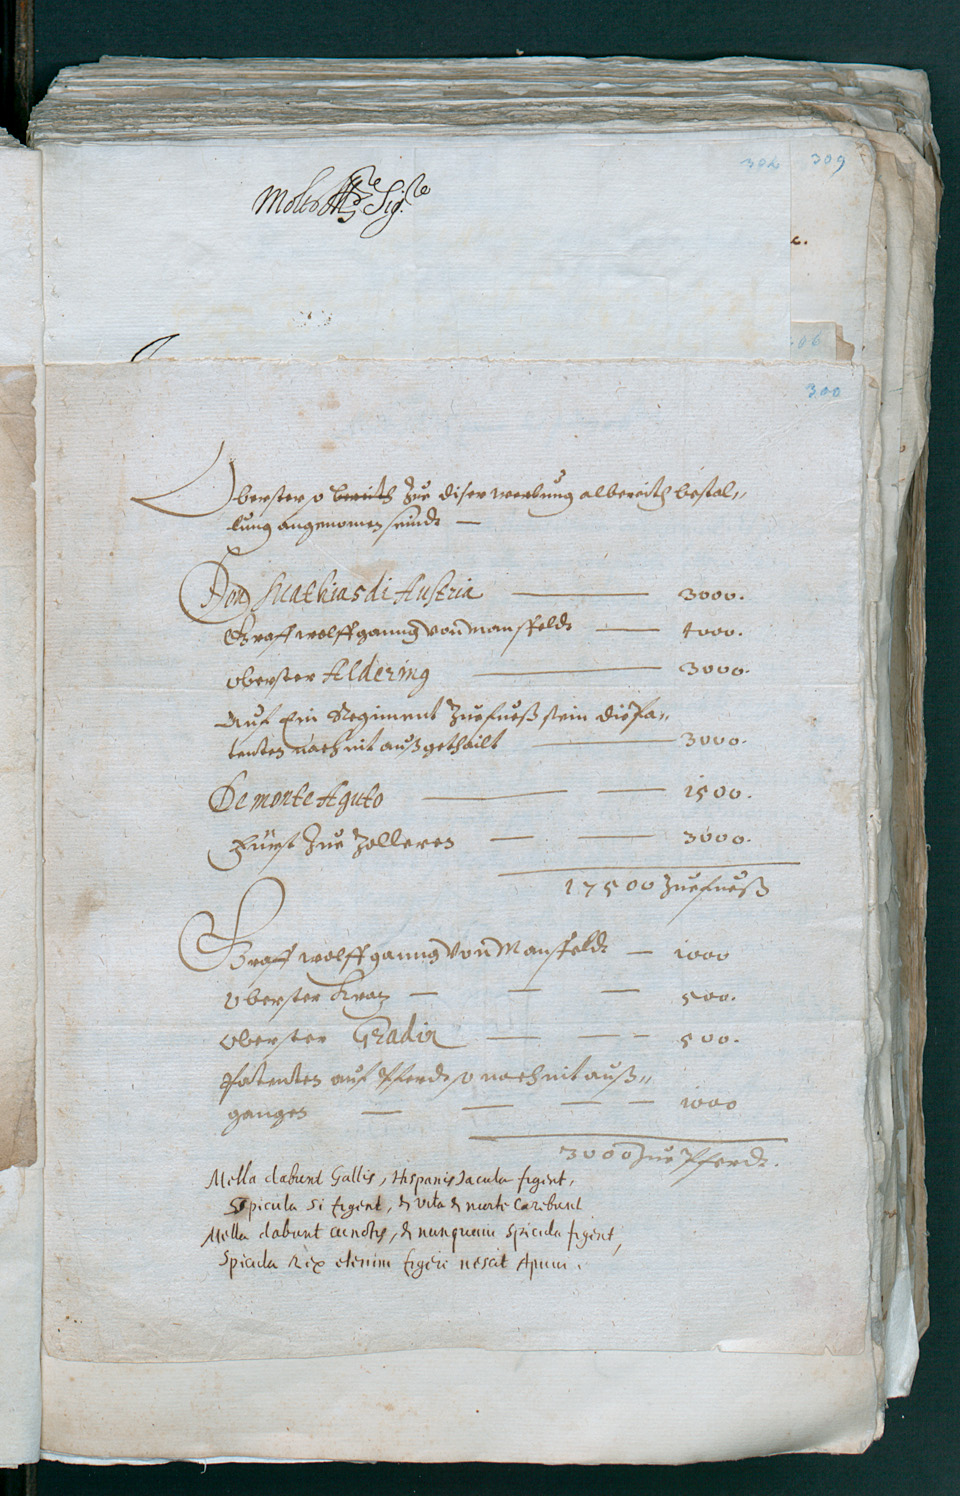 302 309
Molto Ill.re Sig.re
300
Oberster so bereith Zue diser werbung albereith bestal„
lung angenomen seind —
Don Mathias di Austria — 3000.
Graff wolffganng von Mansfeldt — 4000.
obrister Aldering — 3000.
Auf Ein Regiment Zuefueß sein die Pa„
tenten noch nit außgethailt — 3000.
De monte Aguto — — 1500.
Fürst Zue Zolleren — — 3000.
17500 Zuefueß
Graff wolffganng von Mansfeldt — 1000
Obrister Kraz — — — 500.
Obrister Gradiz — — — 500.
Patenten auf Pferdt so noch nit auß„
gangen — — — — 1000
3000 Zue Pferdt.
Mella dabunt Gallis, Hispanis Iacula figent,
Spicula si figent, & vita & morte caribunt
Mella dabunt cunctis, & nunquam spicula figent,
Spicula Rex etenim figere nescit Apum.